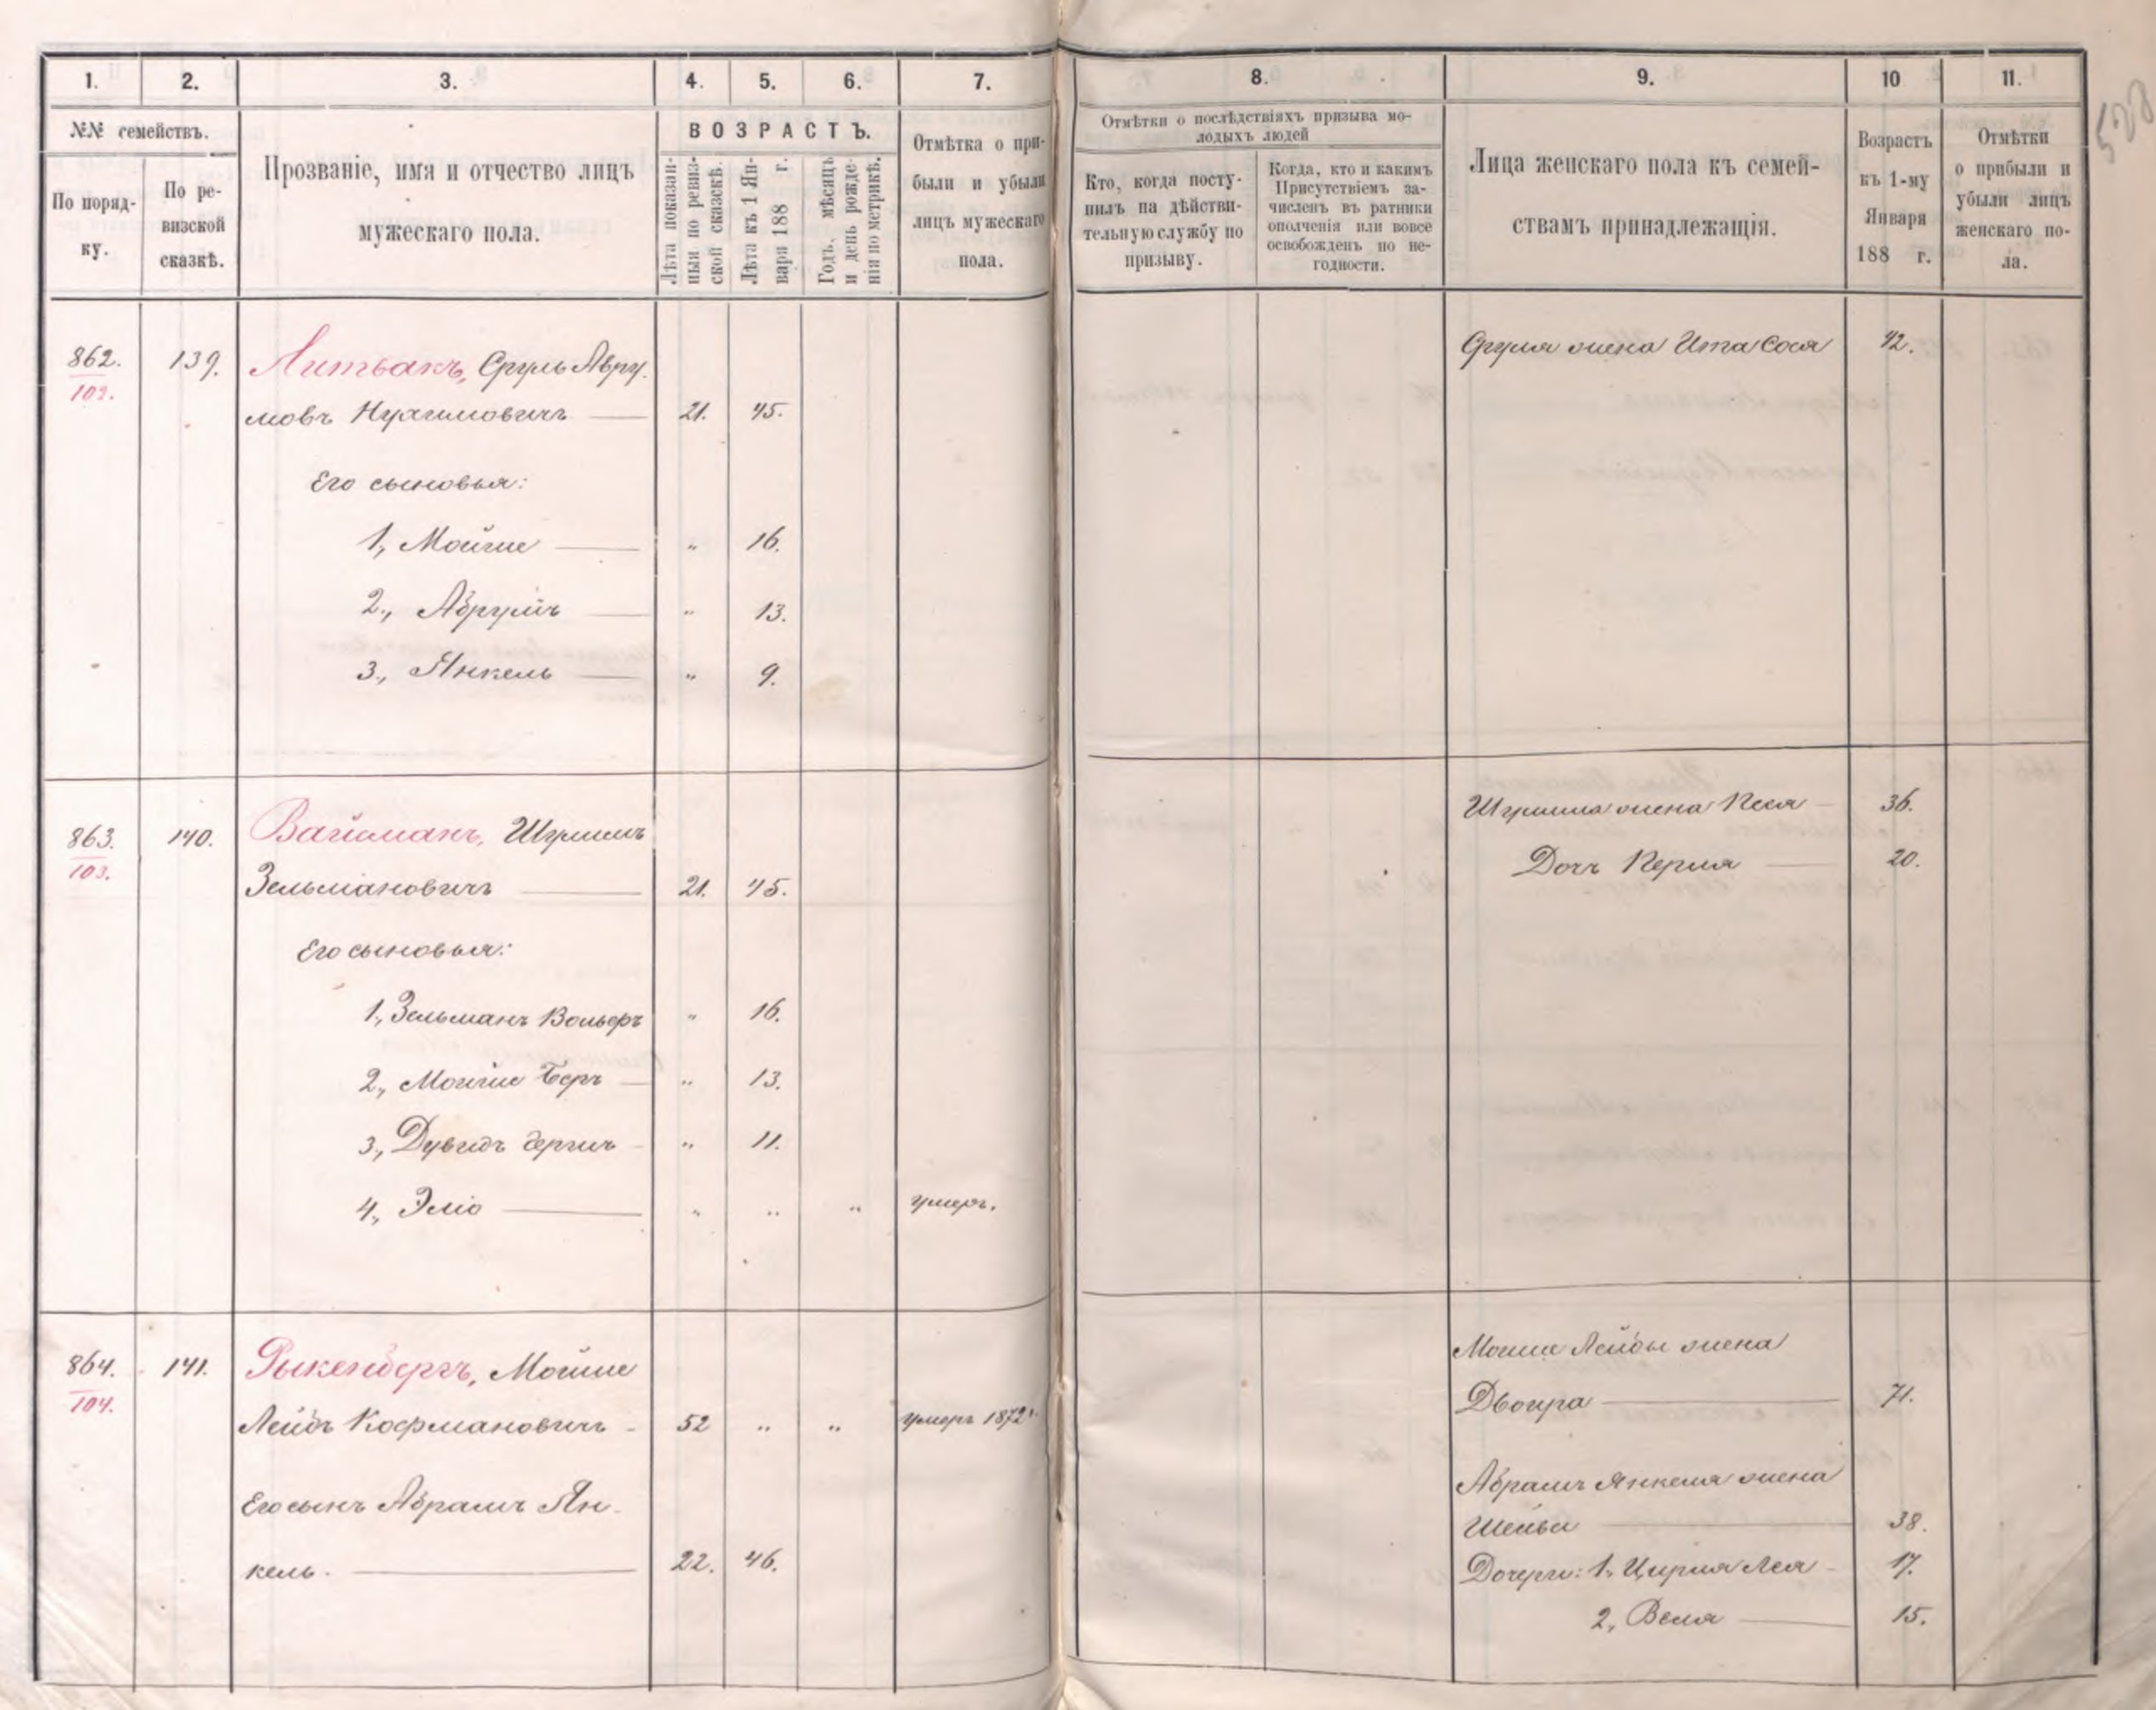 508
1. 2. 3. 4. 5. 6. 7. 8. 9. 10 11.
№№ семействъ.
По поряд-
ку.
По ре-
визской
сказкѣ.
Прозваніе, имя и отчество лицъ
мужескаго пола.
ВОЗРАСТЪ.
Лѣта показан-
ныя по ревиз-
ской сказкѣ.
Лѣта къ 1 Ян-
варя 188 г.
Годъ, мѣсяцъ
и день рожде-
нія по метрикѣ.
Отмѣтка о при-
были и убыли
лицъ мужескаго
пола.
Отмѣтки о послѣдствіяхъ призыва мо-
лодыхъ людей
Кто, когда посту-
пилъ на дѣйстви-
тельную службу по
призыву.
Когда, кто и какимъ
Присутствіемъ за-
численъ въ ратники
ополченія или вовсе
освобожденъ по не-
годности.
Лица женскаго пола къ семей-
ствамъ принадлежащія.
Возрастъ
къ 1-му
Января
188 г.
Отмѣтки
о прибыли и
убыли лицъ
женскаго по-
ла.
862. 139. Литвакъ, Сруль Авру-
102.
мовъ 21. 45.
Его сыновья:
1, Мойше " 16.
2, Аврумъ " 13.
3, Янкель " 9.
Сруля жена Ита Сося 42.
863. 140. Вайсманъ, Шулимъ
103.
Зельмановичъ 21. 45.
Его сыновья:
1, Зельманъ Вольфъ " 16.
2, Мойше Беръ " 13.
3, Дувидъ " 11.
4, Эліо " " " умеръ.
Шулима жена Песя 36.
Дочь Перля 20.
864. 141. Рыкенбергъ, Мойше
104.
Лейбъ Кофмановичъ 52 " " умеръ 1872 г.
Его сынъ Абрамъ Ян-
кель. 22. 46.
Мойше Лейбы жена
Двойра 71.
Абрамъ Янкеля жена
Шейва 38.
Дочери: 1, Цирля Лея 17.
2, Веля 15.